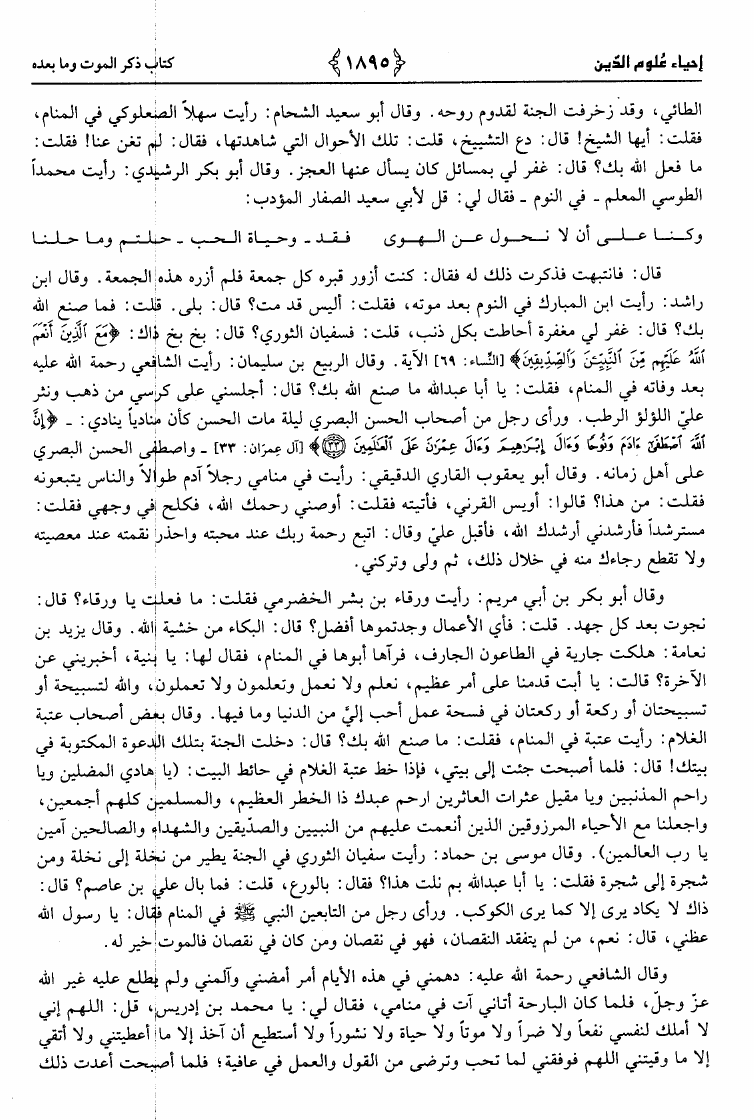 إحياء عُلوم الدّين ﴿١٨٩٥﴾ كتاب ذكر الموت وما بعده
الطائي، وقد زخرفت الجنة لقدوم روحه. وقال أبو سعيد الشحام: رأيت سهلاً الصعلوكي في المنام،
فقلت: أيها الشيخ! قال: دع التشييخ، قلت: تلك الأحوال التي شاهدتها، فقال: لم تغن عنا! فقلت:
ما فعل الله بك؟ قال: غفر لي بمسائل كان يسأل عنها العجز. وقال أبو بكر الرشيدي: رأيت محمداً
الطوسي المعلم ـ في النوم ـ فقال لي: قل لأبي سعيد الصفار المؤدب:
وكنا على أن لا نحول عن الهوى فقد ـ وحياة الحب ـ حلتم وما حلنا
قال: فانتبهت فذكرت ذلك له فقال: كنت أزور قبره كل جمعة فلم أزره هذه الجمعة. وقال ابن
راشد: رأيت ابن المبارك في النوم بعد موته، فقلت: أليس قد مت؟ قال: بلى. قلت: فما صنع الله
بك؟ قال: غفر لي مغفرة أحاطت بكل ذنب، قلت: فسفيان الثوري؟ قال: بخ بخ ذاك: ﴿مَعَ الَّذِينَ أَنْعَمَ
اللَّهُ عَلَيْهِم مِّنَ النَّبِيِّـۧنَ وَالصِّدِّيقِينَ﴾ [النِّساء: ٦٩] الآية. وقال الربيع بن سليمان: رأيت الشافعي رحمة الله عليه
بعد وفاته في المنام، فقلت: يا أبا عبدالله ما صنع الله بك؟ قال: أجلسني على كرسي من ذهب ونثر
عليّ اللؤلؤ الرطب. ورأى رجل من أصحاب الحسن البصري ليلة مات الحسن كأن منادياً ينادي: ـ ﴿إِنَّ
اللَّهَ اصْطَفَىٰٓ ءَادَمَ وَنُوحًا وَءَالَ إِبْرَٰهِيمَ وَءَالَ عِمْرَٰنَ عَلَى الْعَٰلَمِينَ ۝٣٣﴾ [آل عِمرَان: ٣٣] ـ واصطفى الحسن البصري
على أهل زمانه. وقال أبو يعقوب القاري الدقيقي: رأيت في منامي رجلاً آدم طوالاً والناس يتبعونه
فقلت: من هذا؟ قالوا: أويس القرني، فأتيته فقلت: أوصني رحمك الله، فكلح في وجهي فقلت:
مسترشداً فأرشدني أرشدك الله، فأقبل عليّ وقال: اتبع رحمة ربك عند محبته واحذر نقمته عند معصيته
ولا تقطع رجاءك منه في خلال ذلك، ثم ولى وتركني.
وقال أبو بكر بن أبي مريم: رأيت ورقاء بن بشر الخضرمي فقلت: ما فعلت يا ورقاء؟ قال:
نجوت بعد كل جهد. قلت: فأي الأعمال وجدتموها أفضل؟ قال: البكاء من خشية الله. وقال يزيد بن
نعامة: هلكت جارية في الطاعون الجارف، فرآها أبوها في المنام، فقال لها: يا بنية، أخبريني عن
الآخرة؟ قالت: يا أبت قدمنا على أمر عظيم، نعلم ولا نعمل وتعلمون ولا تعملون، والله لتسبيحة أو
تسبيحتان أو ركعة أو ركعتان في فسحة عمل أحب إليَّ من الدنيا وما فيها. وقال بعض أصحاب عتبة
الغلام: رأيت عتبة في المنام، فقلت: ما صنع الله بك؟ قال: دخلت الجنة بتلك الدعوة المكتوبة في
بيتك! قال: فلما أصبحت جئت إلى بيتي، فإذا خط عتبة الغلام في حائط البيت: (يا هادي المضلين ويا
راحم المذنبين ويا مقيل عثرات العاثرين ارحم عبدك ذا الخطر العظيم، والمسلمين كلهم أجمعين،
واجعلنا مع الأحياء المرزوقين الذين أنعمت عليهم من النبيين والصدّيقين والشهداء والصالحين آمين
يا رب العالمين). وقال موسى بن حماد: رأيت سفيان الثوري في الجنة يطير من نخلة إلى نخلة ومن
شجرة إلى شجرة فقلت: يا أبا عبدالله بم نلت هذا؟ فقال: بالورع، قلت: فما بال علي بن عاصم؟ قال:
ذاك لا يكاد يرى إلا كما يرى الكوكب. ورأى رجل من التابعين النبي ﷺ في المنام فقال: يا رسول الله
عظني، قال: نعم، من لم يتفقد النقصان، فهو في نقصان ومن كان في نقصان فالموت خير له.
وقال الشافعي رحمة الله عليه: دهمني في هذه الأيام أمر أمضني وآلمني ولم يطلع عليه غير الله
عزّ وجلّ، فلما كان البارحة أتاني آت في منامي، فقال لي: يا محمد بن إدريس، قل: اللهم إني
لا أملك لنفسي نفعاً ولا ضراً ولا موتاً ولا حياة ولا نشوراً ولا أستطيع أن آخذ إلا ما أعطيتني ولا أتقي
إلا ما وقيتني اللهم فوفقني لما تحب وترضى من القول والعمل في عافية؛ فلما أصبحت أعدت ذلك